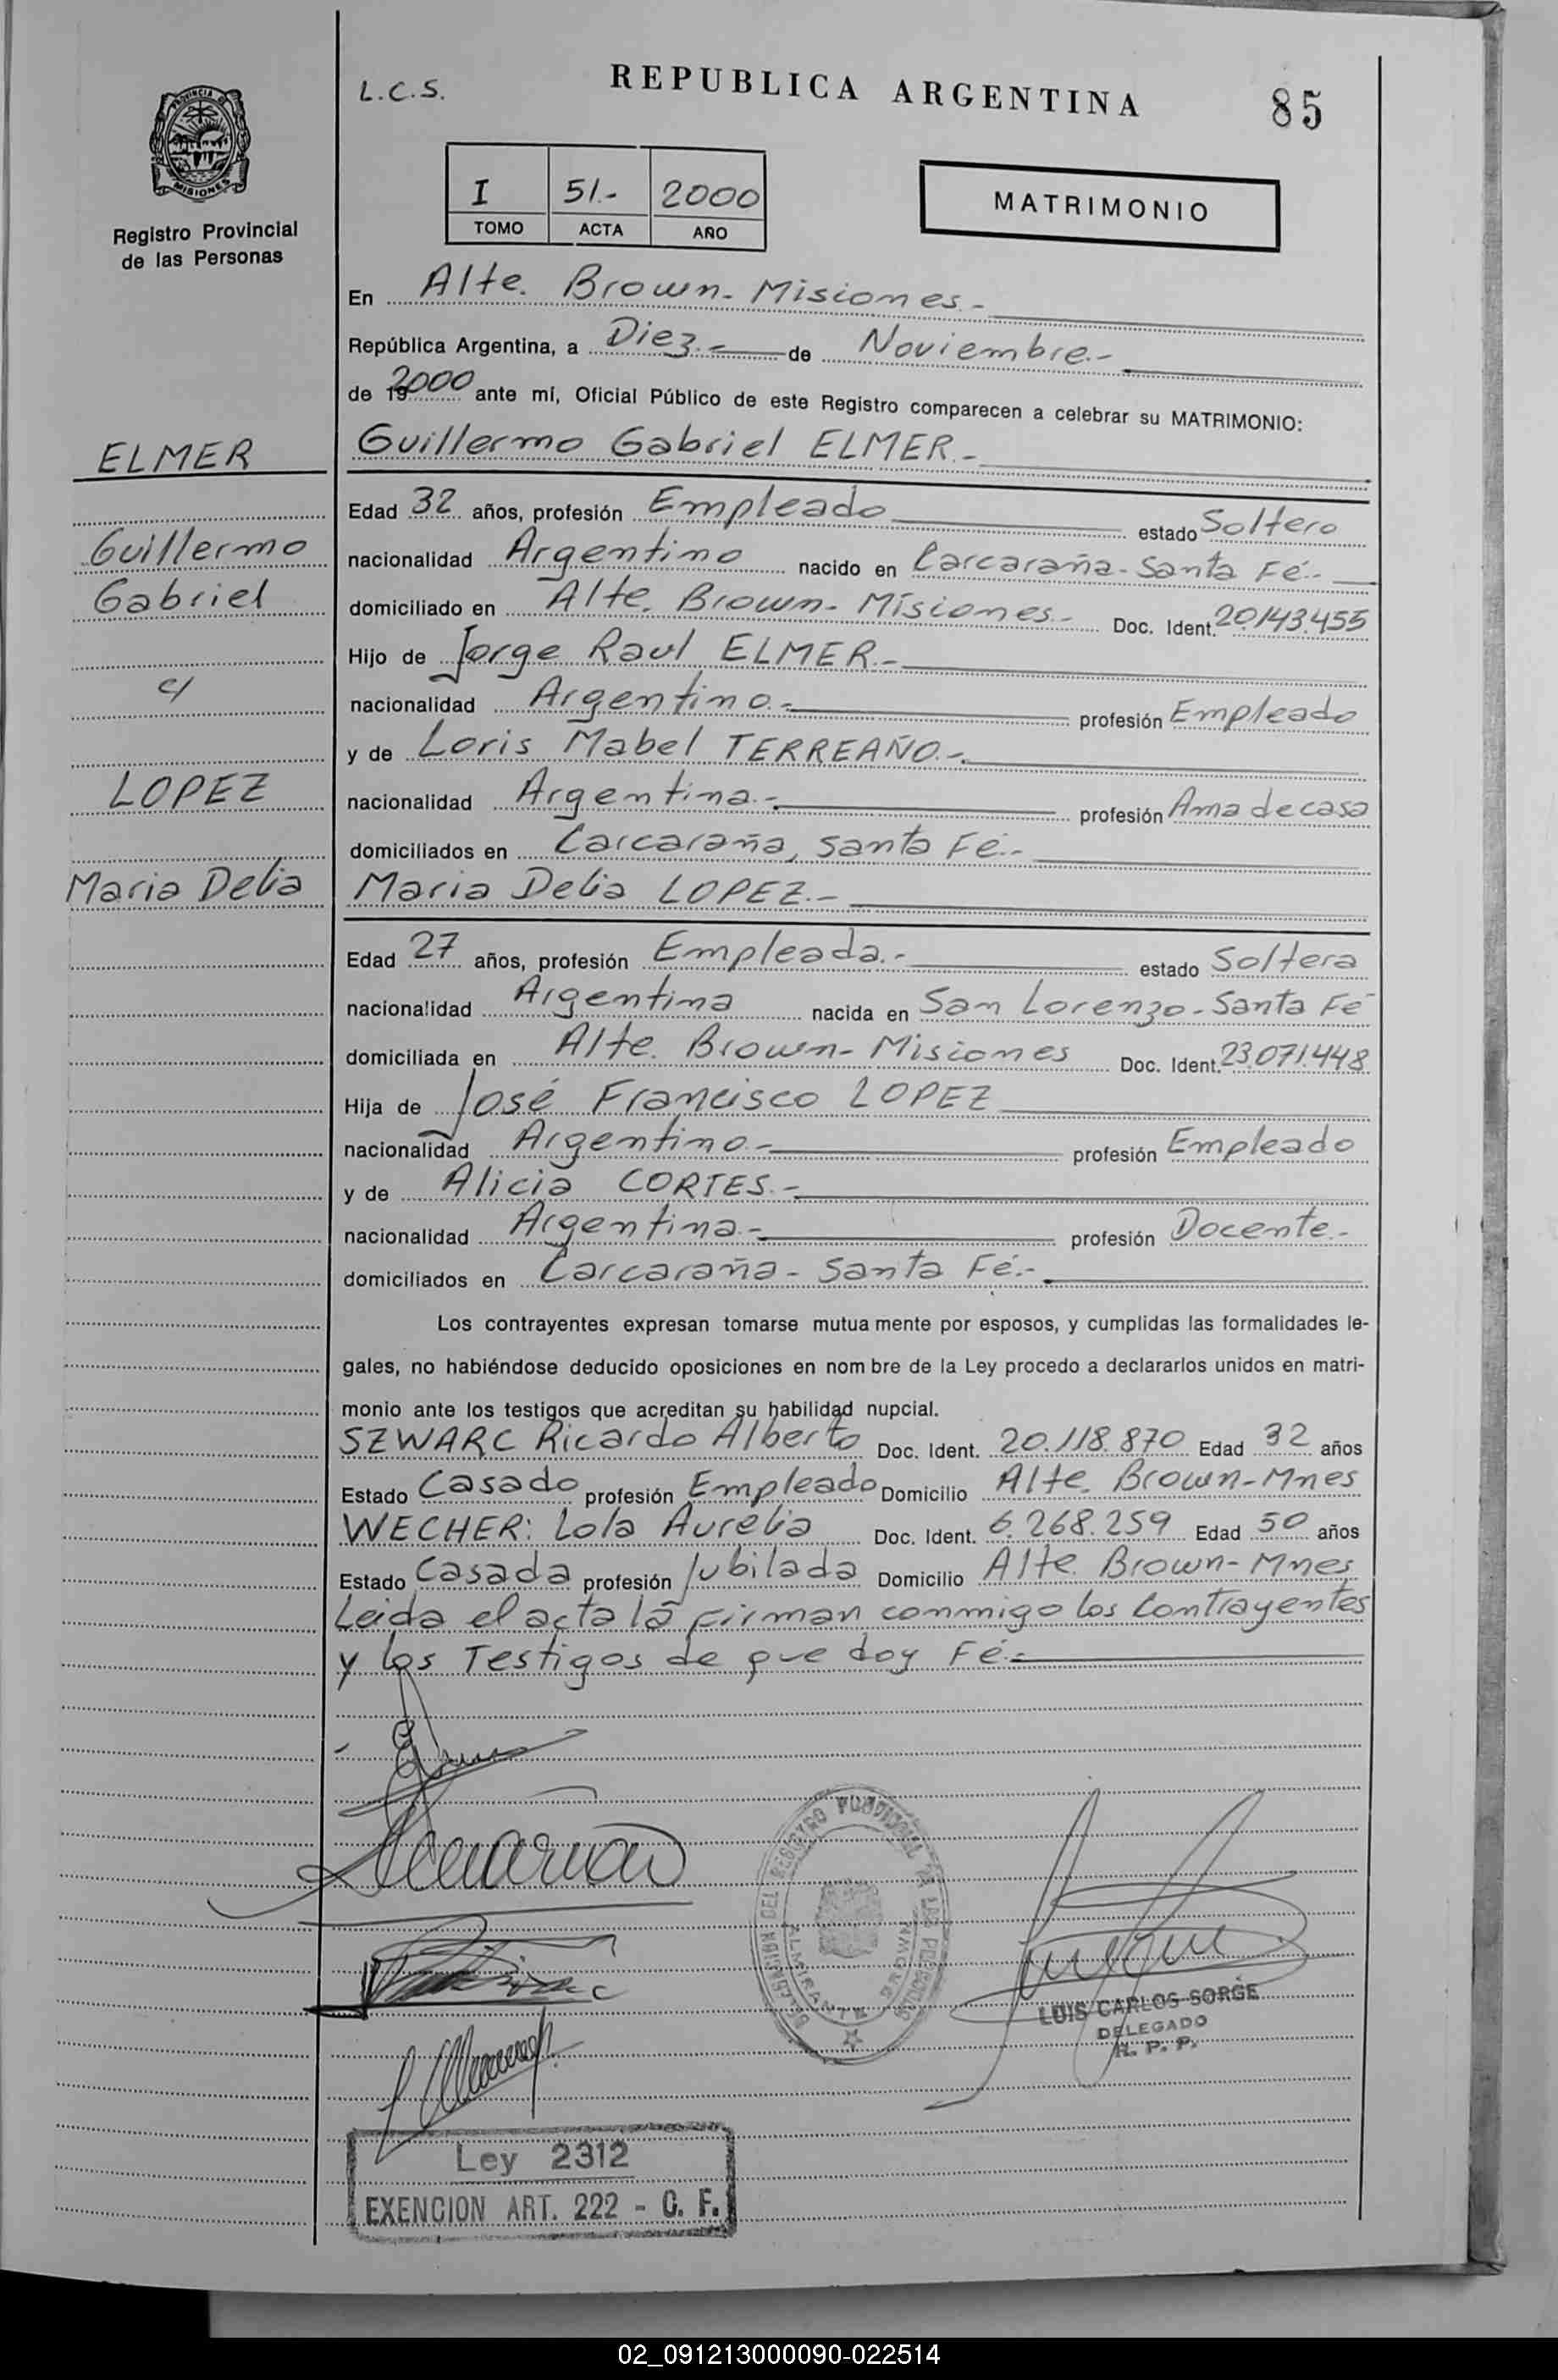 L.C.S.
REPUBLICA ARGENTINA
85
PROVINCIA D
MISIONES
Registro Provincial
de las Personas
I 51.- 2000
TOMO ACTA AÑO
MATRIMONIO
En Alte. Brown - Misiones.-
República Argentina, a Diez.- de Noviembre.-
de 192000 ante mí, Oficial Público de este Registro comparecen a celebrar su MATRIMONIO:
ELMER
Guillermo Gabriel ELMER.-
Edad 32 años, profesión Empleado estado Soltero
Guillermo
nacionalidad Argentino nacido en Carcaraña - Santa Fé.-
Gabriel
domiciliado en Alte. Brown - Misiones.- Doc. Ident. 20.143.455
Hijo de Jorge Raul ELMER.-
c/
nacionalidad Argentino.- profesión Empleado
y de Loris Mabel TERREAÑO.-
LOPEZ
nacionalidad Argentina.- profesión Ama de casa
domiciliados en Carcaraña, Santa Fé.-
Maria Delia
Maria Delia LOPEZ.-
Edad 27 años, profesión Empleada.- estado Soltera
nacionalidad Argentina nacida en San Lorenzo - Santa Fé
domiciliada en Alte. Brown - Misiones Doc. Ident. 23.071.448
Hija de José Francisco LOPEZ
nacionalidad Argentino.- profesión Empleado
y de Alicia CORTES.-
nacionalidad Argentina.- profesión Docente.-
domiciliados en Carcaraña - Santa Fé.-
Los contrayentes expresan tomarse mutua mente por esposos, y cumplidas las formalidades le-
gales, no habiéndose deducido oposiciones en nom bre de la Ley procedo a declararlos unidos en matri-
monio ante los testigos que acreditan su habilidad nupcial.
SZWARC Ricardo Alberto Doc. Ident. 20.118.870 Edad 32 años
Estado Casado profesión Empleado Domicilio Alte. Brown - Mnes
WECHER: Lola Aurelia Doc. Ident. 6.268.259 Edad 50 años
Estado Casada profesión Jubilada Domicilio Alte. Brown - Mnes
Leida el acta la firman conmmigo los Contrayentes
y los Testigos de que doy Fé.-
DELEGACION DEL REGISTRO PROVINCIAL DE LAS PERSONAS
ALMIRANTE BROWN
LUIS CARLOS SORGE
DELEGADO
R. P. P.
Ley 2312
EXENCION ART. 222 - C. F.
02_091213000090-022514